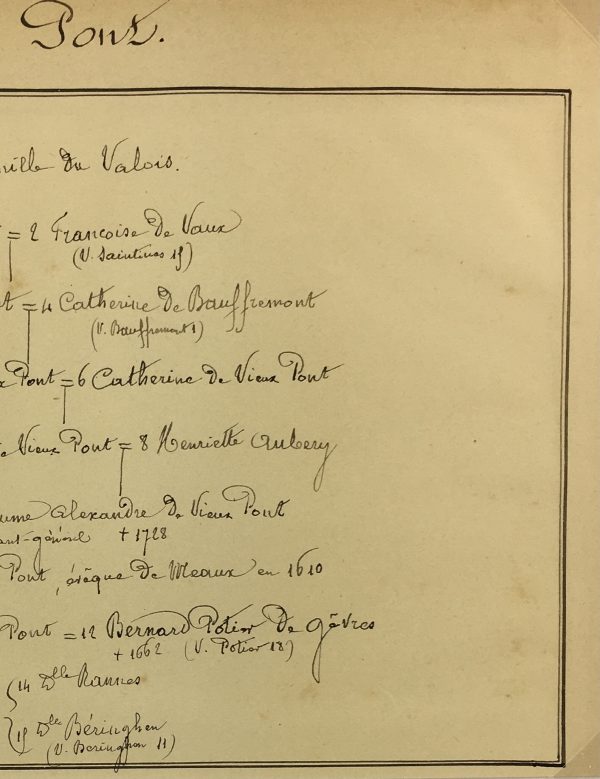 Pont.
mille du Valois.
= 2 Françoise de Vaux
(V. Saintines 15)
t = 4 Catherine de Bauffremont
(V. Bauffremont 1)
x Pont = 6 Catherine de Vieux Pont
e Vieux Pont = 8 Henriette Aubery
ume Alexandre de Vieux Pont
ant-général + 1728
Pont, évêque de Meaux en 1610
Pont = 12 Bernard Potier de Gêvres
+ 1662 (V. Potier 18)
14 Dlle Rannes
15 Dlle Béringhen
(V. Beringhen 11)